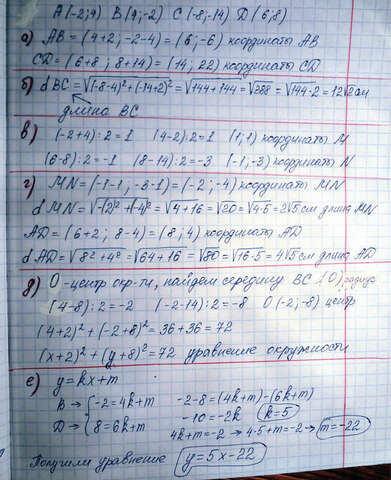 A(-2;4) B(4;-2) C(-8;-14) D(6;8)
а) AB = (4+2; -2-4) = (6; -6) координаты AB
CD = (6+8; 8+14) = (14; 22) координаты CD
б) d BC = √(-8-4)² + (-14+2)² = √144+144 = √288 = √144·2 = 12√2 см
длина BC
в) (-2+4):2=1 (4-2):2=1 (1;1) координаты M
(6-8):2=-1 (8-14):2=-3 (-1;-3) координаты N
г) MN = (-1-1, -3-1) = (-2; -4) координаты MN
d MN = √(-2)²+(-4)² = √4+16 = √20 = √4·5 = 2√5 см длина MN
AD = (6+2; 8-4) = (8; 4) координаты AD
d AD = √8²+4² = √64+16 = √80 = √16·5 = 4√5 см длина AD
д) O-центр окр-ти, найдем середину BC (O), радиус
(4-8):2=-2 (-2-14):2=-8 O(-2;-8) центр
(4+2)² + (-2+8)² = 36+36 = 72
(x+2)² + (y+8)² = 72 уравнение окружности
е) y=kx+m
B → {-2=4k+m -2-8=(4k+m)-(6k+m)
D → {8=6k+m -10=-2k k=5
4k+m=-2 → 4·5+m=-2 → m=-22
Получили уравнение y=5x-22